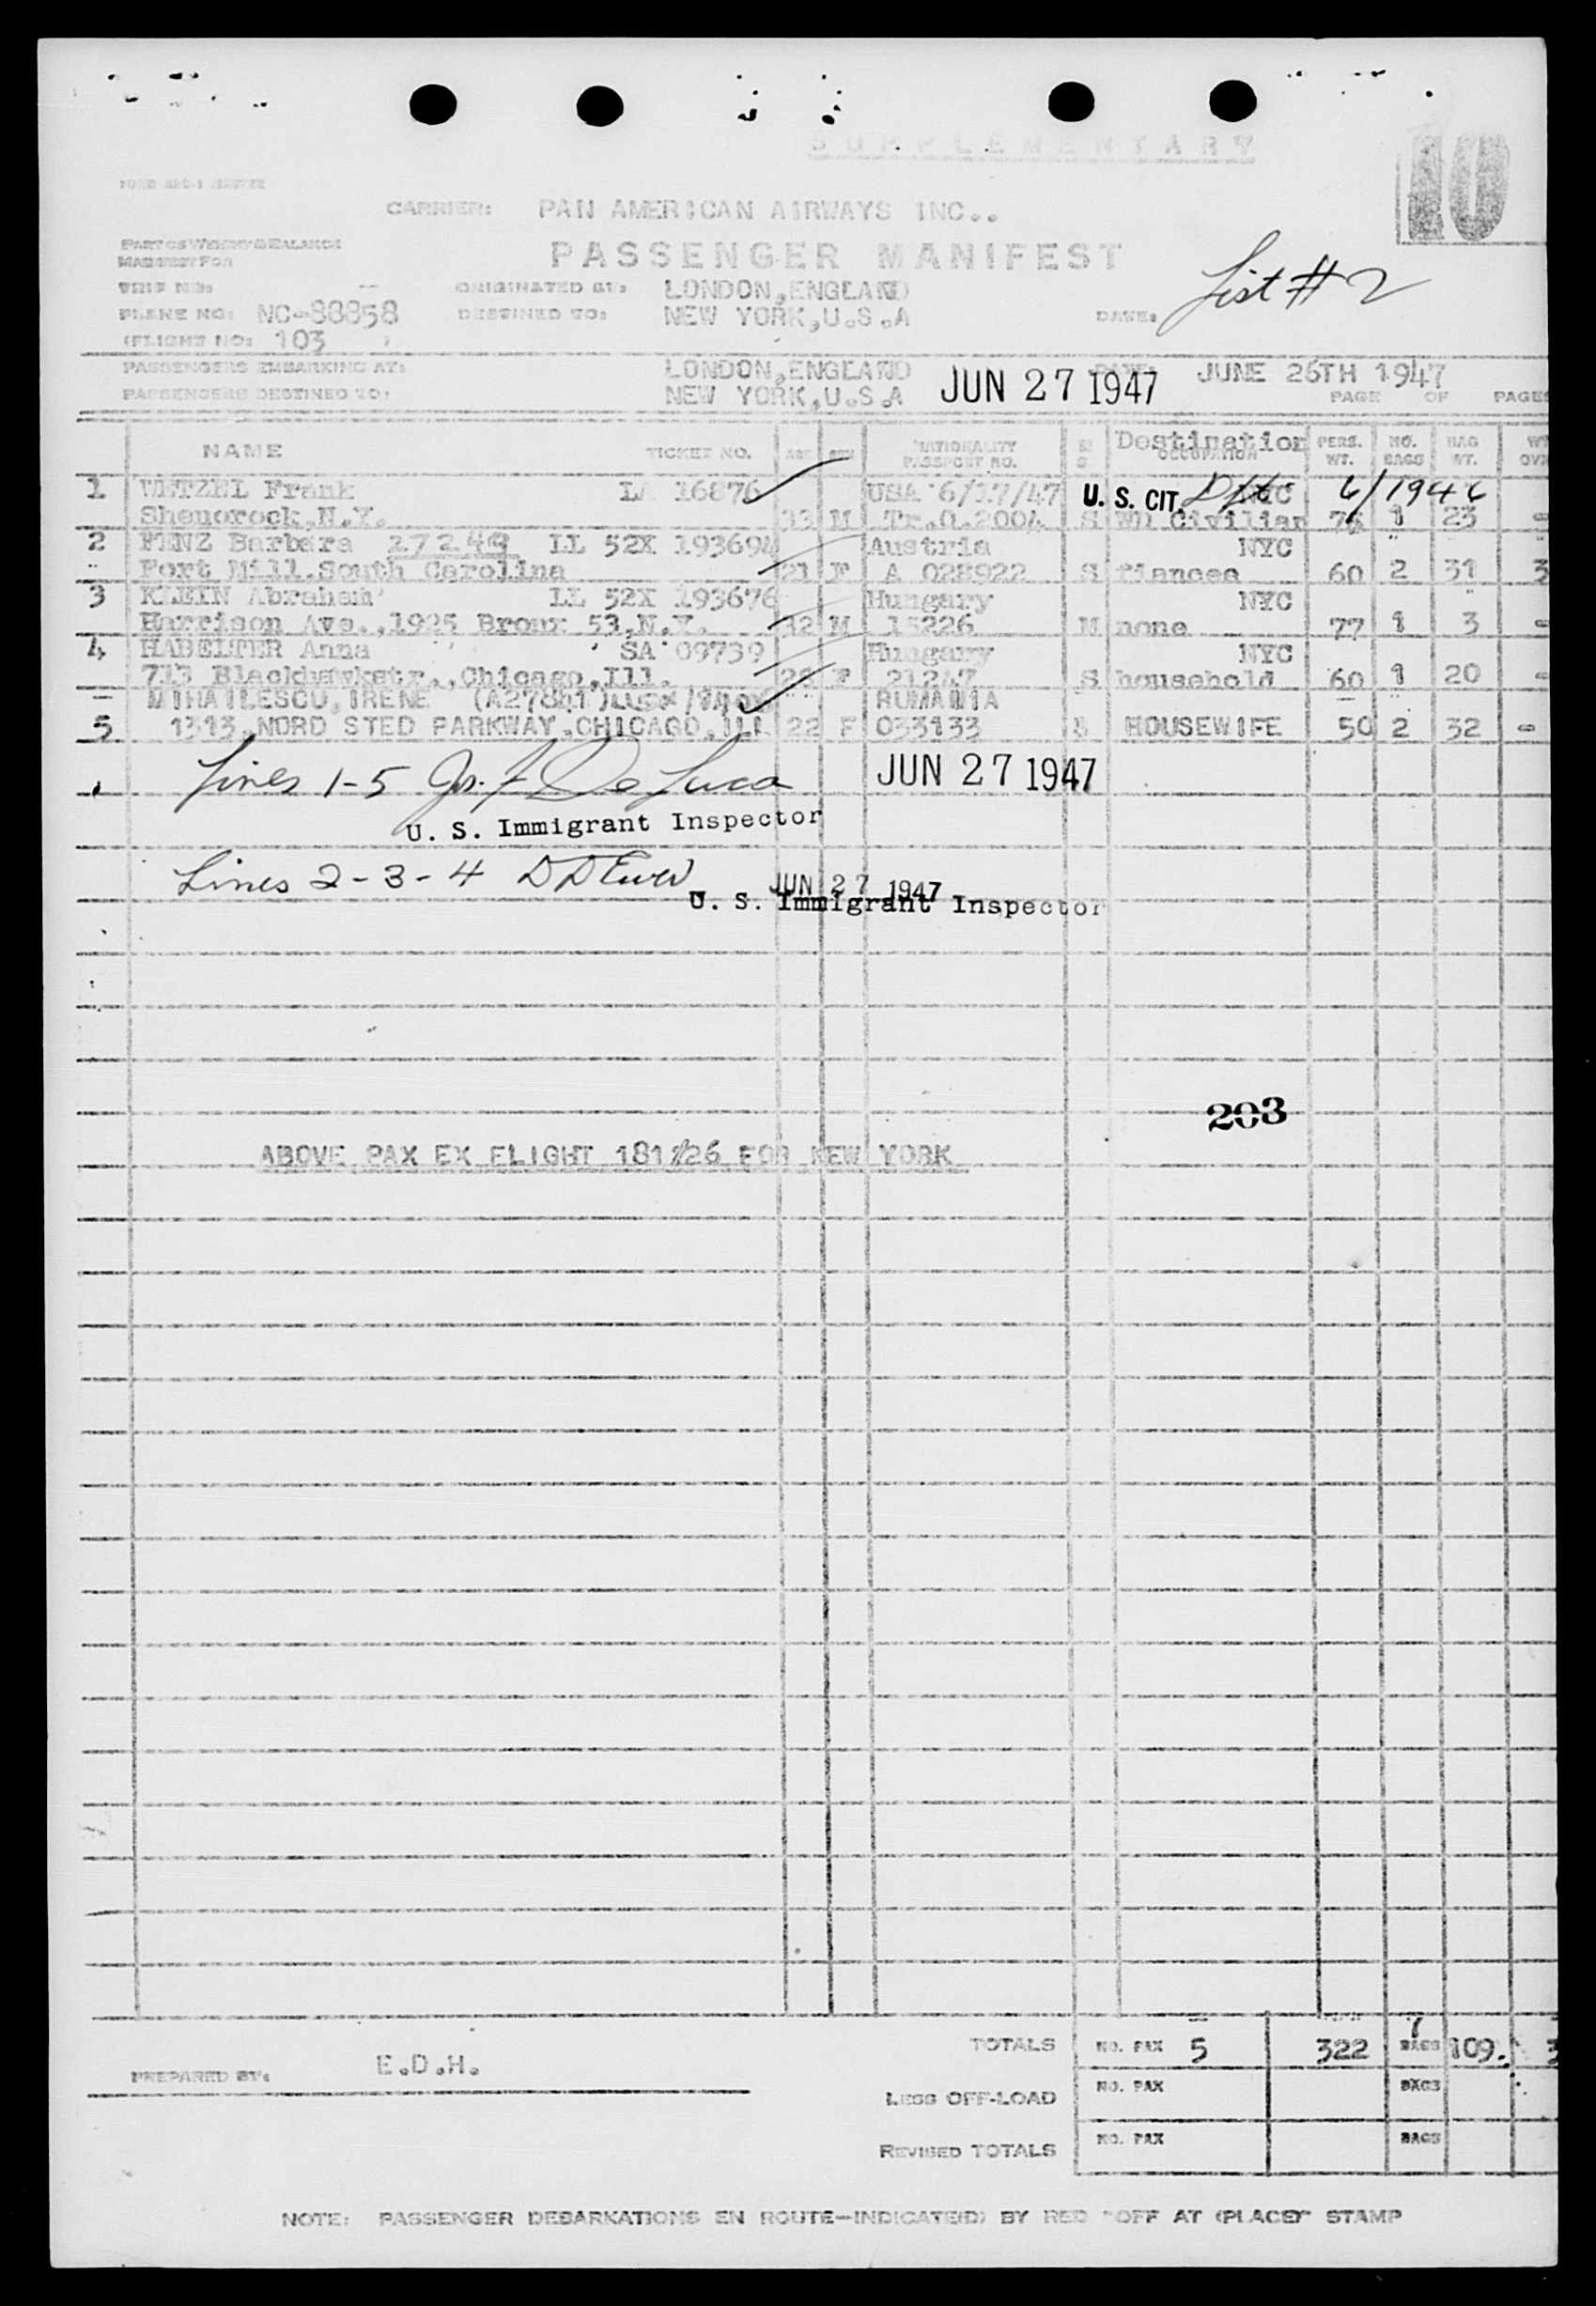 SUPPLEMENTARY
10
CARRIER: PAN AMERICAN AIRWAYS INC..
PART OF WEIGHT & BALANCE
MANIFEST FOR
PASSENGER MANIFEST
List # 2
TRIP NO: -- ORIGINATED AT: LONDON,ENGLAND
PLANE NO: NC-88858 DESTINED TO: NEW YORK,U.S.A DATE:
(FLIGHT NO: 103 )
PASSENGERS EMBARKING AT: LONDON,ENGLAND DATE: JUNE 26TH 1947
PASSENGERS DESTINED TO: NEW YORK,U.S.A JUN 27 1947 PAGE OF PAGES
NAME TICKET NO. AGE SEX NATIONALITY PASSPORT NO. M S Destination OCCUPATION PERS. WT. NO. BAGS BAG WT. WT OVR
1 WETZEL Frank LA 16876 USA 6/17/47 U. S. CIT. NYC 6/1946
Shenorock,N.Y. 33 M Tr.O.2004 S WD Civilian 1 23 -
2 FENZ Barbara LL 52X 193694 Austria NYC
Fort Mill.South Carolina 21 F A 028922 S fiancee 60 2 31 3
3 KLEIN Abraham LL 52X 193676 Hungary NYC
Harrison Ave.,1925 Bronx 53,N.Y. M 15226 M none 77 1 3 -
4 HABELTER Anna SA 09739 Hungary NYC
713 Blackhawkstr.,Chicago,Ill. F 21247 S household 60 1 20 -
MIHAILESCU, IRENE RUMANIA
5 1313,NORD STED PARKWAY,CHICAGO,ILL 22 F 033133 S HOUSEWIFE 50 2 32 -
Lines 1-5 De Luca JUN 27 1947
U. S. Immigrant Inspector
Lines 2-3-4 JUN 27 1947
U. S. Immigrant Inspector
203
ABOVE PAX EX FLIGHT 181/26 FOR NEW YORK
TOTALS NO. PAX 5 322 7 BAGS 109. 3
PREPARED BY: E.D.H.
LESS OFF-LOAD NO. PAX BAGS
REVISED TOTALS NO. PAX BAGS
NOTE: PASSENGER DEBARKATIONS EN ROUTE-INDICATE(D) BY RED "OFF AT (PLACE)" STAMP